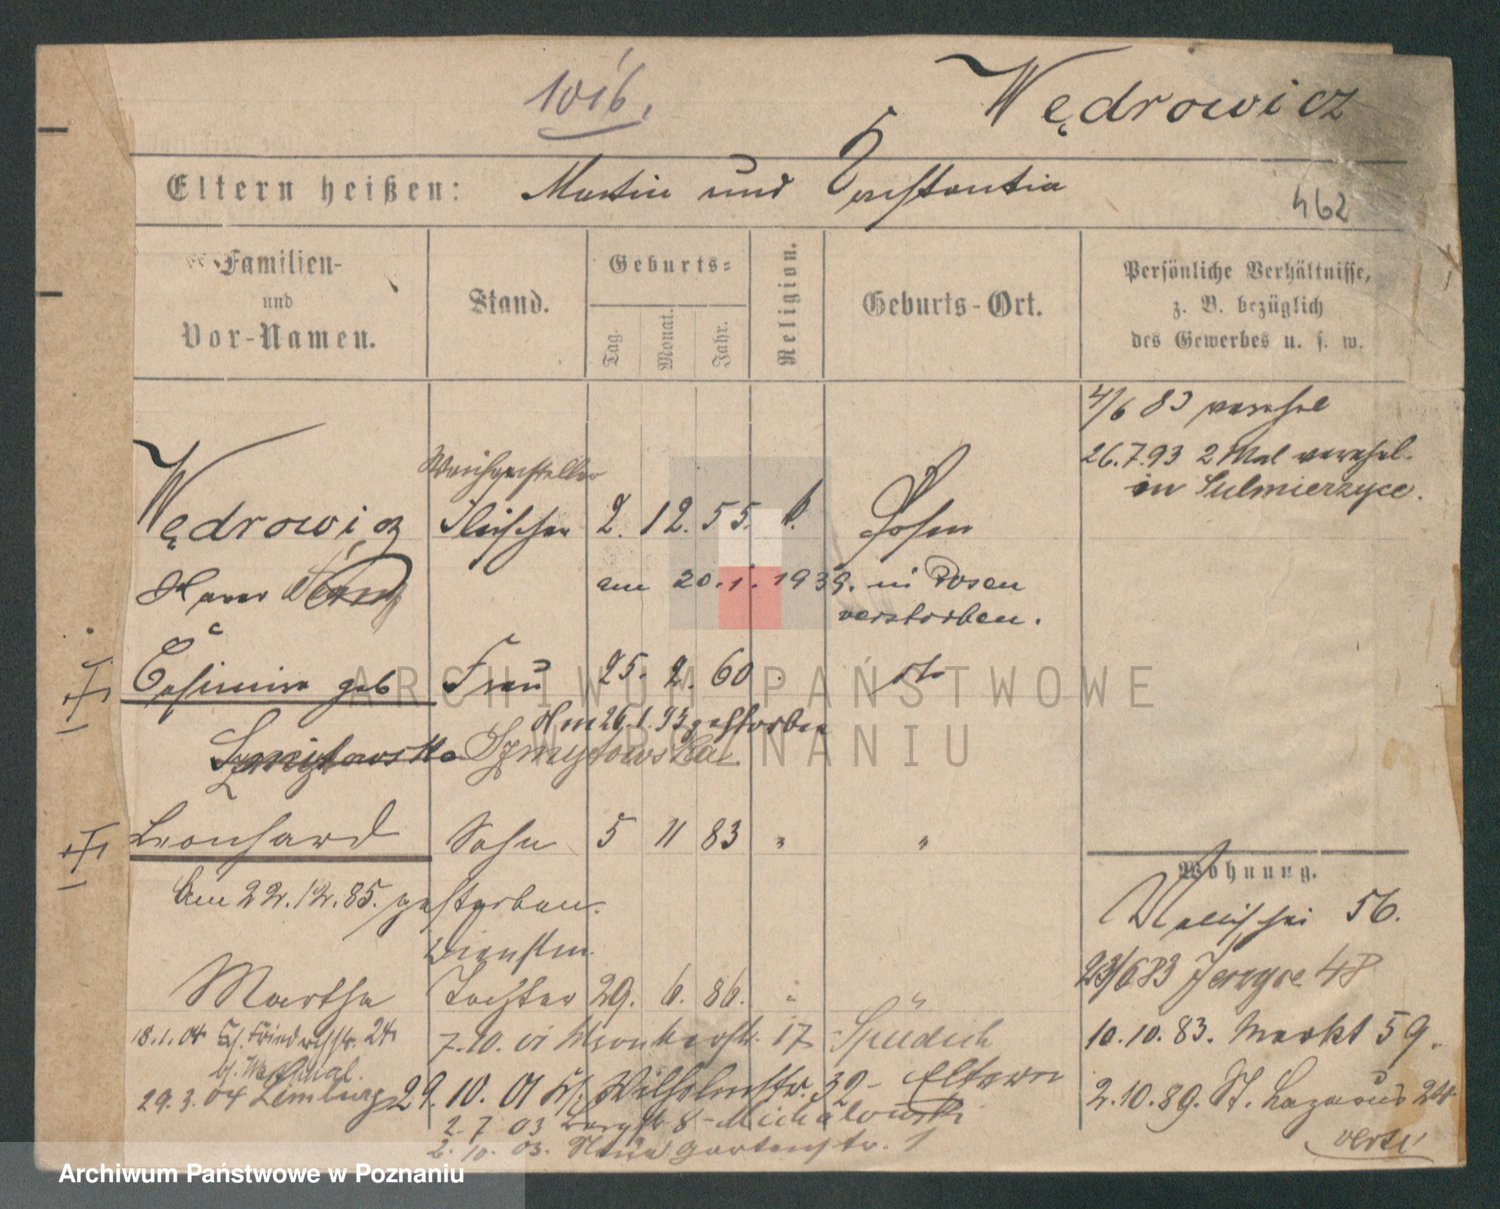 1016.
Wędrowicz
Eltern heißen: Martin und Constantia
462
Familien-
und
Vor-Namen.
Stand.
Geburts-
Tag.
Monat.
Jahr.
Religion.
Geburts-Ort.
Persönliche Verhältnisse,
z. B. bezüglich
des Gewerbes u. s. w.
4/6 83 verehel
26.7.93 2 Mal verehel.
in Sulmierzyce.
Wędrowicz Fleischer 2. 12. 55. k. Posen
am 20.1.1939. in Posen
verstorben.
Casimira geb Frau 25. 2. 60 do
Am 26.1.93 gestorben
Szmytowska Szmytowska
Leonhard Sohn 5 11 83 " "
Am 22.12.85. gestorben.
Dienstm.
Martha Tochter 29. 6. 86. "
18.1.04 Friedrichstr. 24
7.10.01 17 Spüdich
29.3.04 Lemburg
29.10.01 Wilhelmstr. 39 - Eltern
2.7.03 Bergstr 8 - Michalowski
2.10.03. Neue Gartenstr. 1
Wohnung.
Wallischei 56.
23/6 83 Jerzyce 48
10.10.83. Markt 59.
2.10.89. St. Lazarus 24.
verte
ARCHIWUM PAŃSTWOWE
W POZNANIU
Archiwum Państwowe w Poznaniu